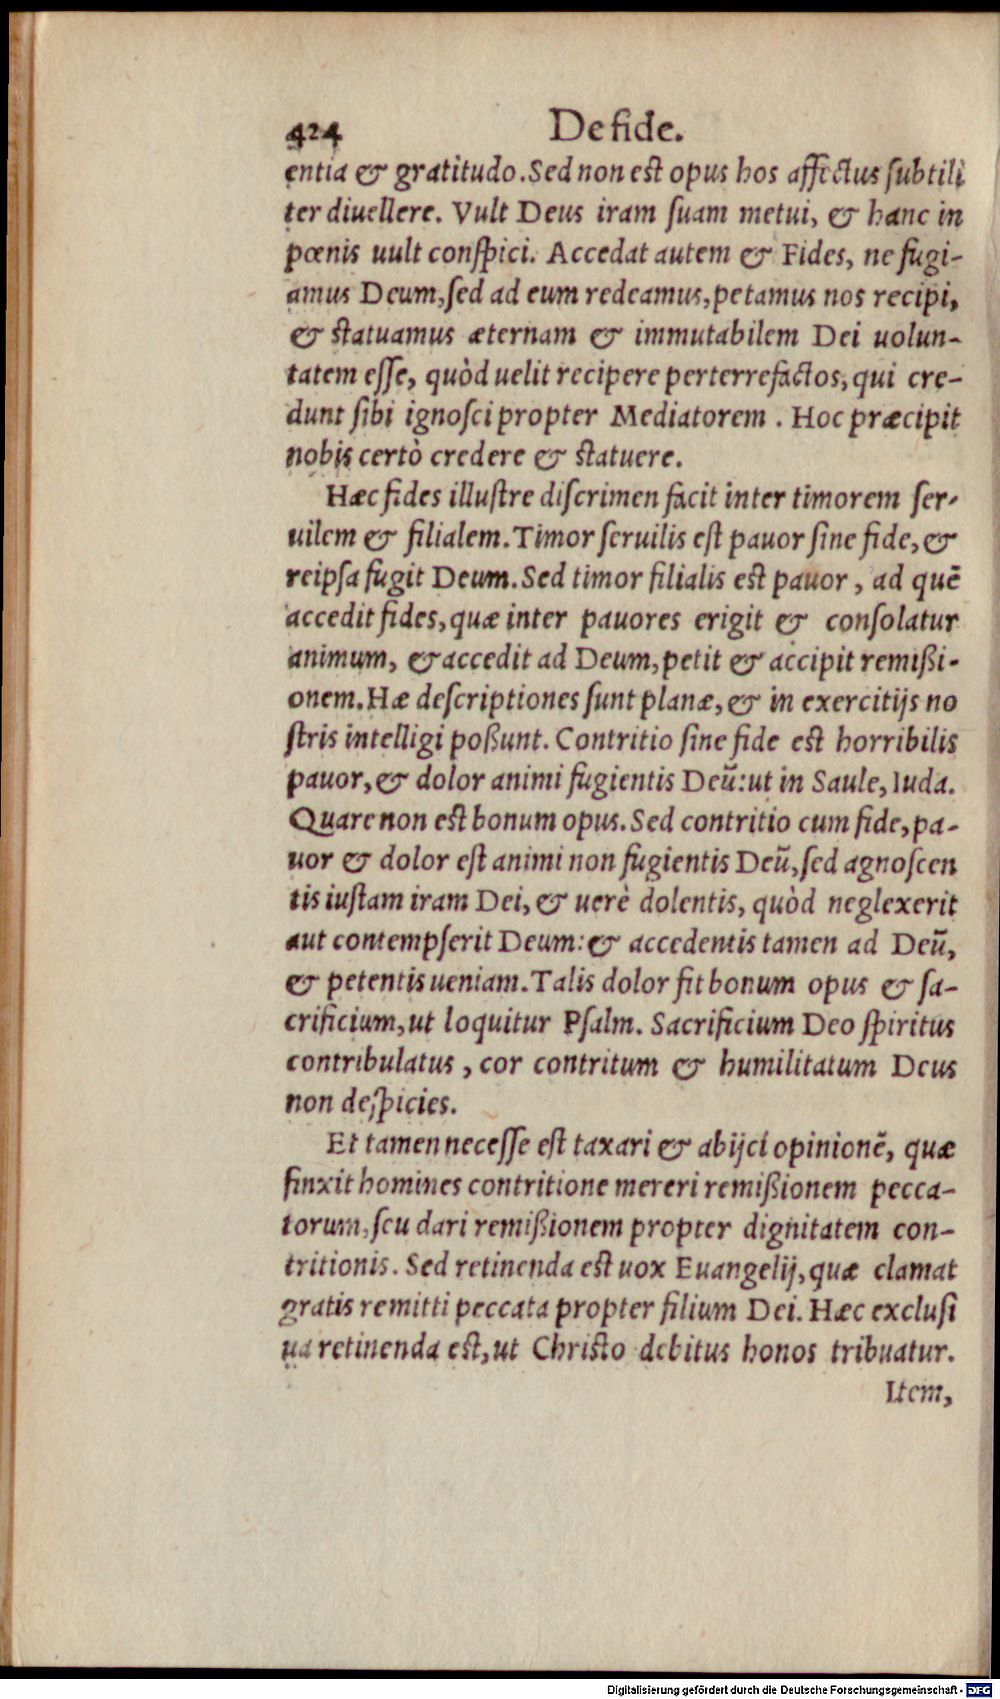 424 De fide.
entia & gratitudo. Sed non est opus hos affectus subtili
ter diuellere. Vult Deus iram suam metui, & hanc in
pœnis uult conspici. Accedat autem & Fides, ne fugi-
amus Deum, sed ad eum redeamus, petamus nos recipi,
& statuamus æternam & immutabilem Dei uolun-
tatem esse, quòd uelit recipere perterrefactos, qui cre-
dunt sibi ignosci propter Mediatorem . Hoc præcipit
nobis certò credere & statuere.
Hæc fides illustre discrimen facit inter timorem ser-
uilem & filialem. Timor seruilis est pauor sine fide, &
reipsa fugit Deum. Sed timor filialis est pauor , ad quē
accedit fides, quæ inter pauores erigit & consolatur
animum, & accedit ad Deum, petit & accipit remißi-
onem. Hæ descriptiones sunt planæ, & in exercitijs no
stris intelligi poßunt. Contritio sine fide est horribilis
pauor, & dolor animi fugientis Deū: ut in Saule, Iuda.
Quare non est bonum opus. Sed contritio cum fide, pa-
uor & dolor est animi non fugientis Deū, sed agnoscen
tis iustam iram Dei, & uerè dolentis, quòd neglexerit
aut contempserit Deum: & accedentis tamen ad Deū,
& petentis ueniam. Talis dolor fit bonum opus & sa-
crificium, ut loquitur Psalm. Sacrificium Deo spiritus
contribulatus , cor contritum & humilitatum Deus
non despicies.
Et tamen necesse est taxari & abijci opinionē, quæ
finxit homines contritione mereri remißionem pecca-
torum, seu dari remißionem propter dignitatem con-
tritionis. Sed retinenda est uox Euangelij, quæ clamat
gratis remitti peccata propter filium Dei. Hæc exclusi
ua retinenda est, ut Christo debitus honos tribuatur.
Item,
Digitalisierung gefördert durch die Deutsche Forschungsgemeinschaft - DFG